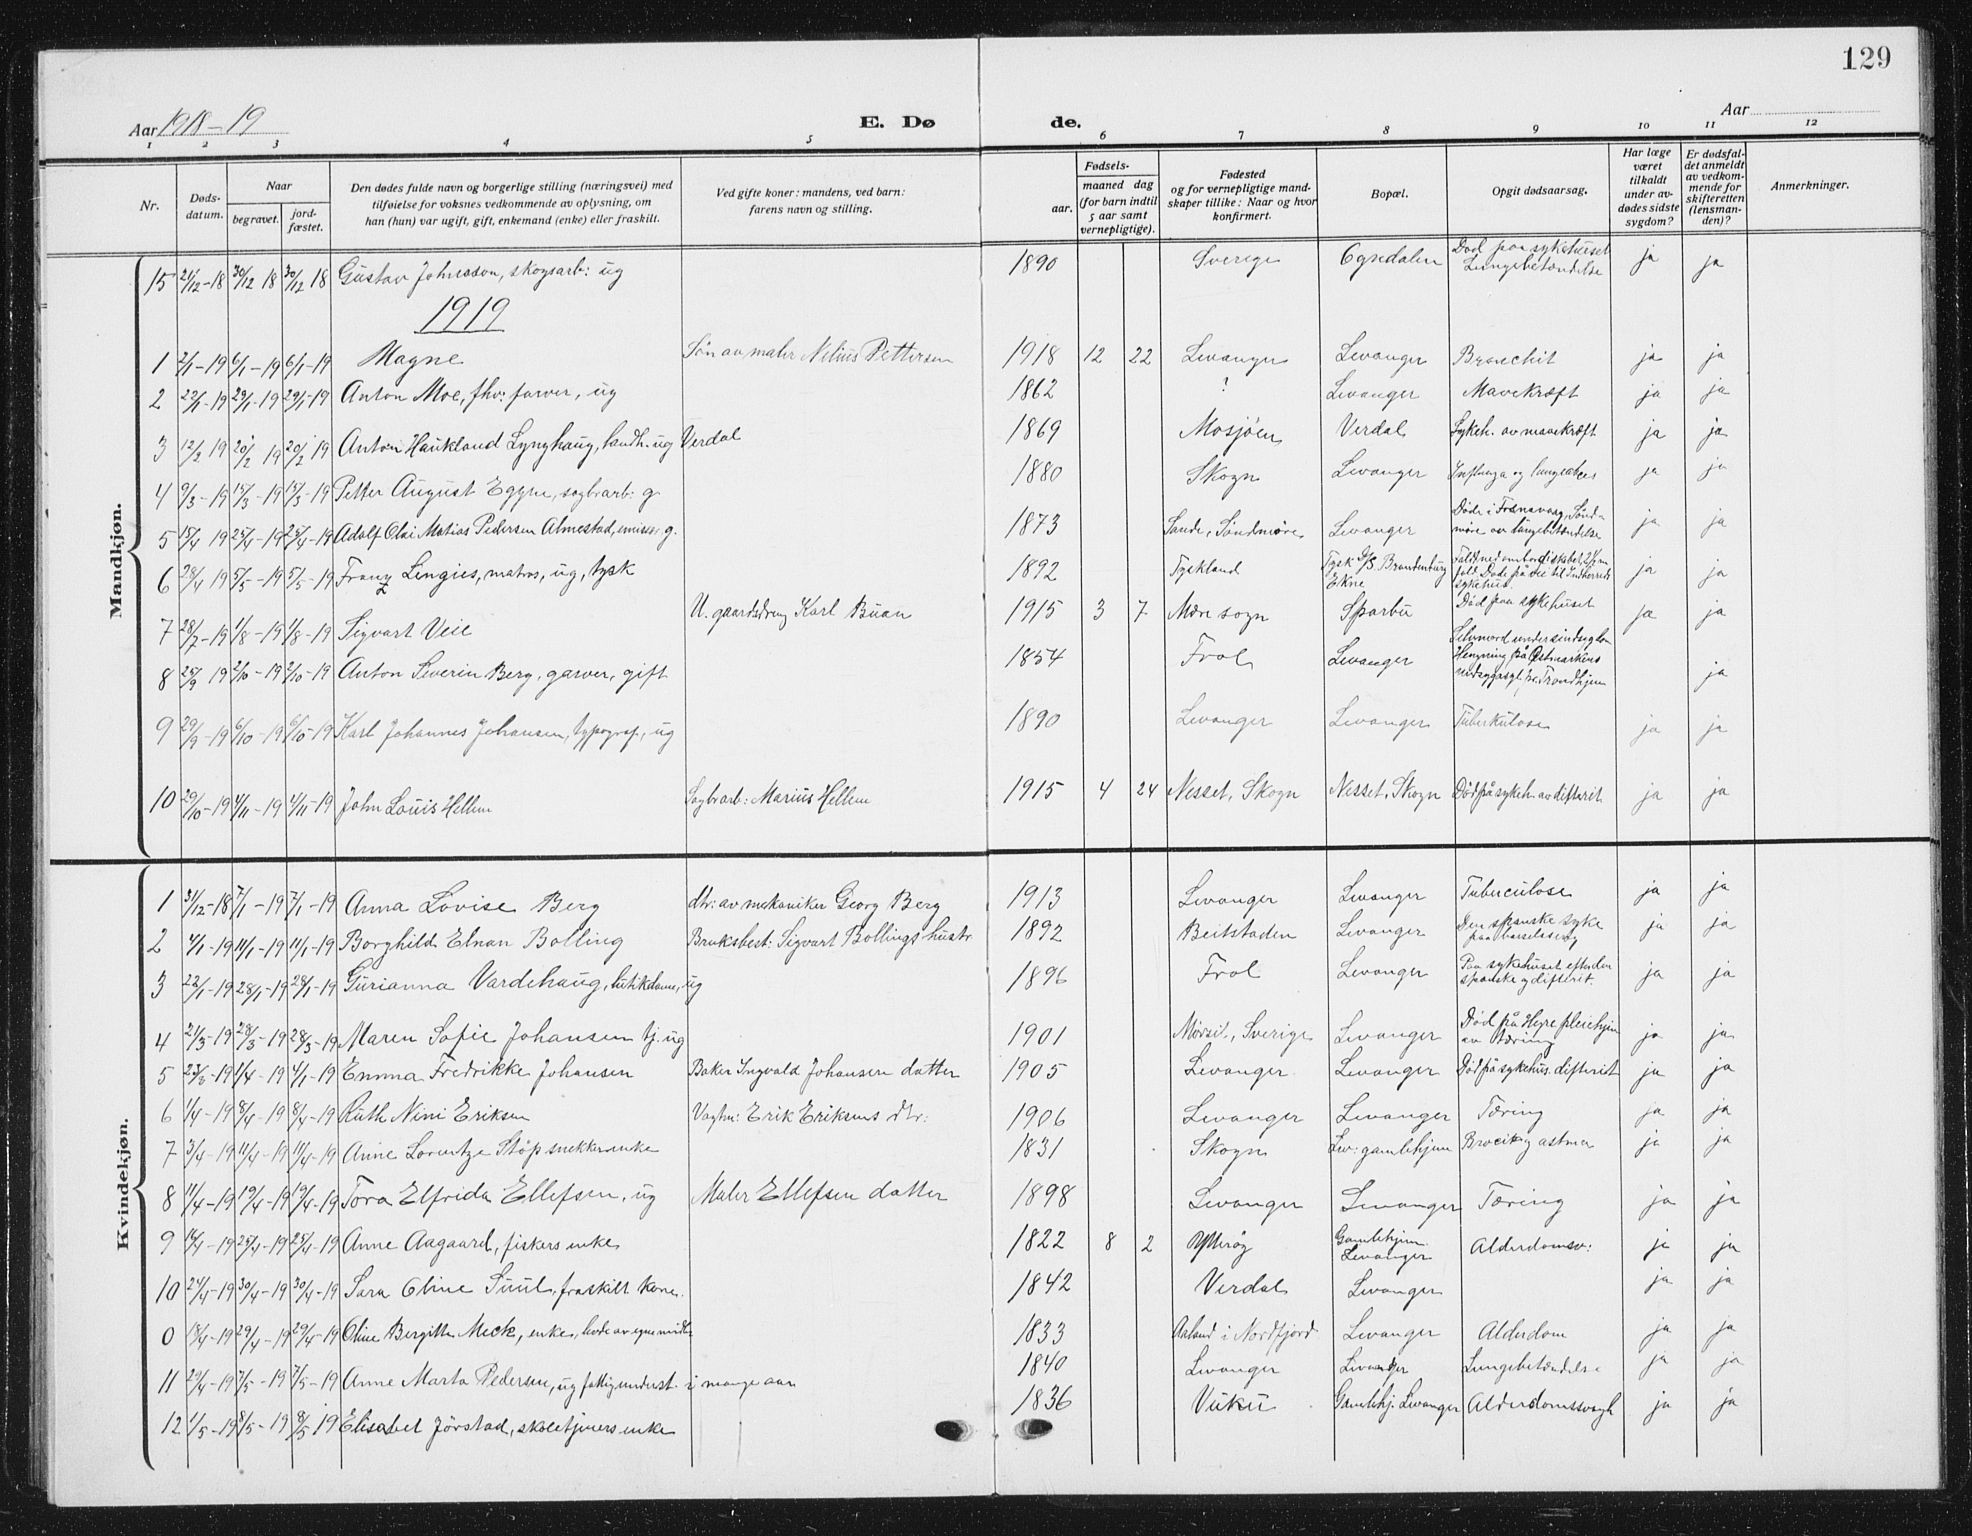 129
Aar 1918-19
E. Dø
de.
Aar
1 2 3 4 5 6 7 8 9 10 11 12
Nr.
Døds-
datum.
Naar
begravet.
jord-
fæstet.
Den dødes fulde navn og borgerlige stilling (næringsvei) med
tilføielse for voksnes vedkommende av oplysning, om
han (hun) var ugift, gift, enkemand (enke) eller fraskilt.
Ved gifte koner: mandens, ved barn:
farens navn og stilling.
Fødsels-
aar.
maaned dag
(for barn indtil
5 aar samt
vernepligtige).
Fødested
og for vernepligtige mand-
skaper tillike: Naar og hvor
konfirmert.
Bopæl.
Opgit dødsaarsag.
Har læge
været
tilkaldt
under av-
dødes sidste
sygdom?
Er dødsfal-
det anmeldt
av vedkom-
mende for
skifteretten
(lensman-
den)?
Anmerkninger.
Mandkjøn.
15 21/12-18 30/12 18 30/12 18 Gustav Johnsson, skogsarb: ug 1890 Sverige Ogndalen Død paa sykehuset Lungebetændelse ja ja
1919
1 2/1-19 6/1-19 6/1-19 Magne Søn av maler Nelius Pettersen 1918 12 22 Levanger Levanger Bronchit ja ja
2 22/1-19 29/1-19 29/1-19 Anton Moe, fhv: farver, ug 1862 ? Levanger Mavekræft ja ja
3 12/2 19 20/2 19 20/2 19 Anton Haukland Lynghaug, handh. ug Verdal 1869 Mosjøen Verdal Sykeh. av mavekræft ja ja
4 9/3-19 15/3-19 15/3-19 Petter August Eggen, sagbrarb: g 1880 Skogn Levanger Influenza og lungeabces ja ja
5 15/4 19 25/4-19 25/4-19 Adolf Olai Matias Pedersen Almestad, emissær g. 1873 Sande, Søndmøre Levanger Døde i Fosnavaag, Sønd- møre av lungebetændelse ja ja
6 28/4 19 5/5-19 5/5-19 Franz Lengies, matros, ug, tysk 1892 Tyskland Tysk D/S Brandenburg Ekne Faldt ned ombord i skibet, Døde på vei til Indherreds sykehus ja ja
7 28/7-19 1/8-19 1/8-19 Sigvart Veie U. gaardsdreng Karl Buan 1915 3 7 Mære sogn Sparbu Død paa sykehuset ja ja
8 25/9 19 2/10-19 2/10-19 Anton Severin Berg, garver, gift 1854 Frol Levanger Selvmord under sindssygdom Hengning på Østmarkens sindssygeasyl pr. Trondhjem ja
9 29/9-19 6/10-19 6/10-19 Karl Johannes Johansen, typograf, ug 1890 Levanger Levanger Tuberkulose ja ja
10 29/10-19 4/11-19 4/11-19 John Louis Hellem Sagbrarb: Marius Hellem 1915 4 24 Nesset, Skogn Nesset, Skogn Død på sykeh. av difterit ja ja
Kvindekjøn.
1 31/12-18 7/1-19 7/1-19 Anna Lovise Berg dtr: av mekaniker Georg Berg 1913 Levanger Levanger Tuberculose ja ja
2 4/1-19 11/1-19 11/1-19 Borghild Elnan Bolling Bruksbest: Sigvart Bollings hustr. 1892 Beitstaden Levanger Den spanske syke paa barselseng ja ja
3 22/1-19 28/1-19 28/1-19 Gurianna Vardehaug, butikdame, ug 1896 Frol Levanger Paa sykehuset efter den spanske og difterit. ja ja
4 21/3-19 28/3-19 28/3-19 Maren Sofie Johansen tj. ug 1901 Mörsil, Sverige Levanger Død på Heyre pleiehjem av tæring ja ja
5 23/3-19 1/4-19 4/1-19 Emma Fredrikke Johansen Baker Ingvald Johansen datter 1905 Levanger Levanger Død på sykehus. difterit ja ja
6 1/4-19 8/4-19 8/4-19 Ruth Nini Eriksen Vogtm: Erik Eriksens dtr: 1906 Levanger Levanger Tæring ja ja
7 3/4-19 11/4-19 11/4-19 Anne Lorentze Støp snekkerenke 1831 Skogn Lev: gamlehjem astma ja ja
8 11/4-19 19/4-19 19/4-19 Tora Elfrida Ellefsen, ug Maler Ellefsen datter 1898 Levanger Levanger Tæring ja ja
9 16/4-19 25/4-19 25/4-19 Anne Aagaard, fiskers enke 1822 8 2 Ytterøy Gamlehjem. Levanger Alderdomsv: ja ja
10 24/4-19 30/4-19 30/4-19 Sara Oline Suul, fraskilt kone. 1842 Verdal Levanger ja ja
0 18/4-19 29/4-19 29/4-19 Oline Bergitte Meck, enke, levde av egne midler 1833 Aaland i Nordfjord Levanger Alderdom ja ja
11 29/4-19 7/5-19 7/5-19 Anne Marta Pedersen, ug fattigunderst. i mange aar 1840 Levanger Levanger Lungebetændelse ja ja
12 1/5-19 8/5-19 8/5 19 Elisabet Jørstad, skoletjeners enke 1836 Vuku Gamlehj. Levanger Alderdomssvagh ja ja